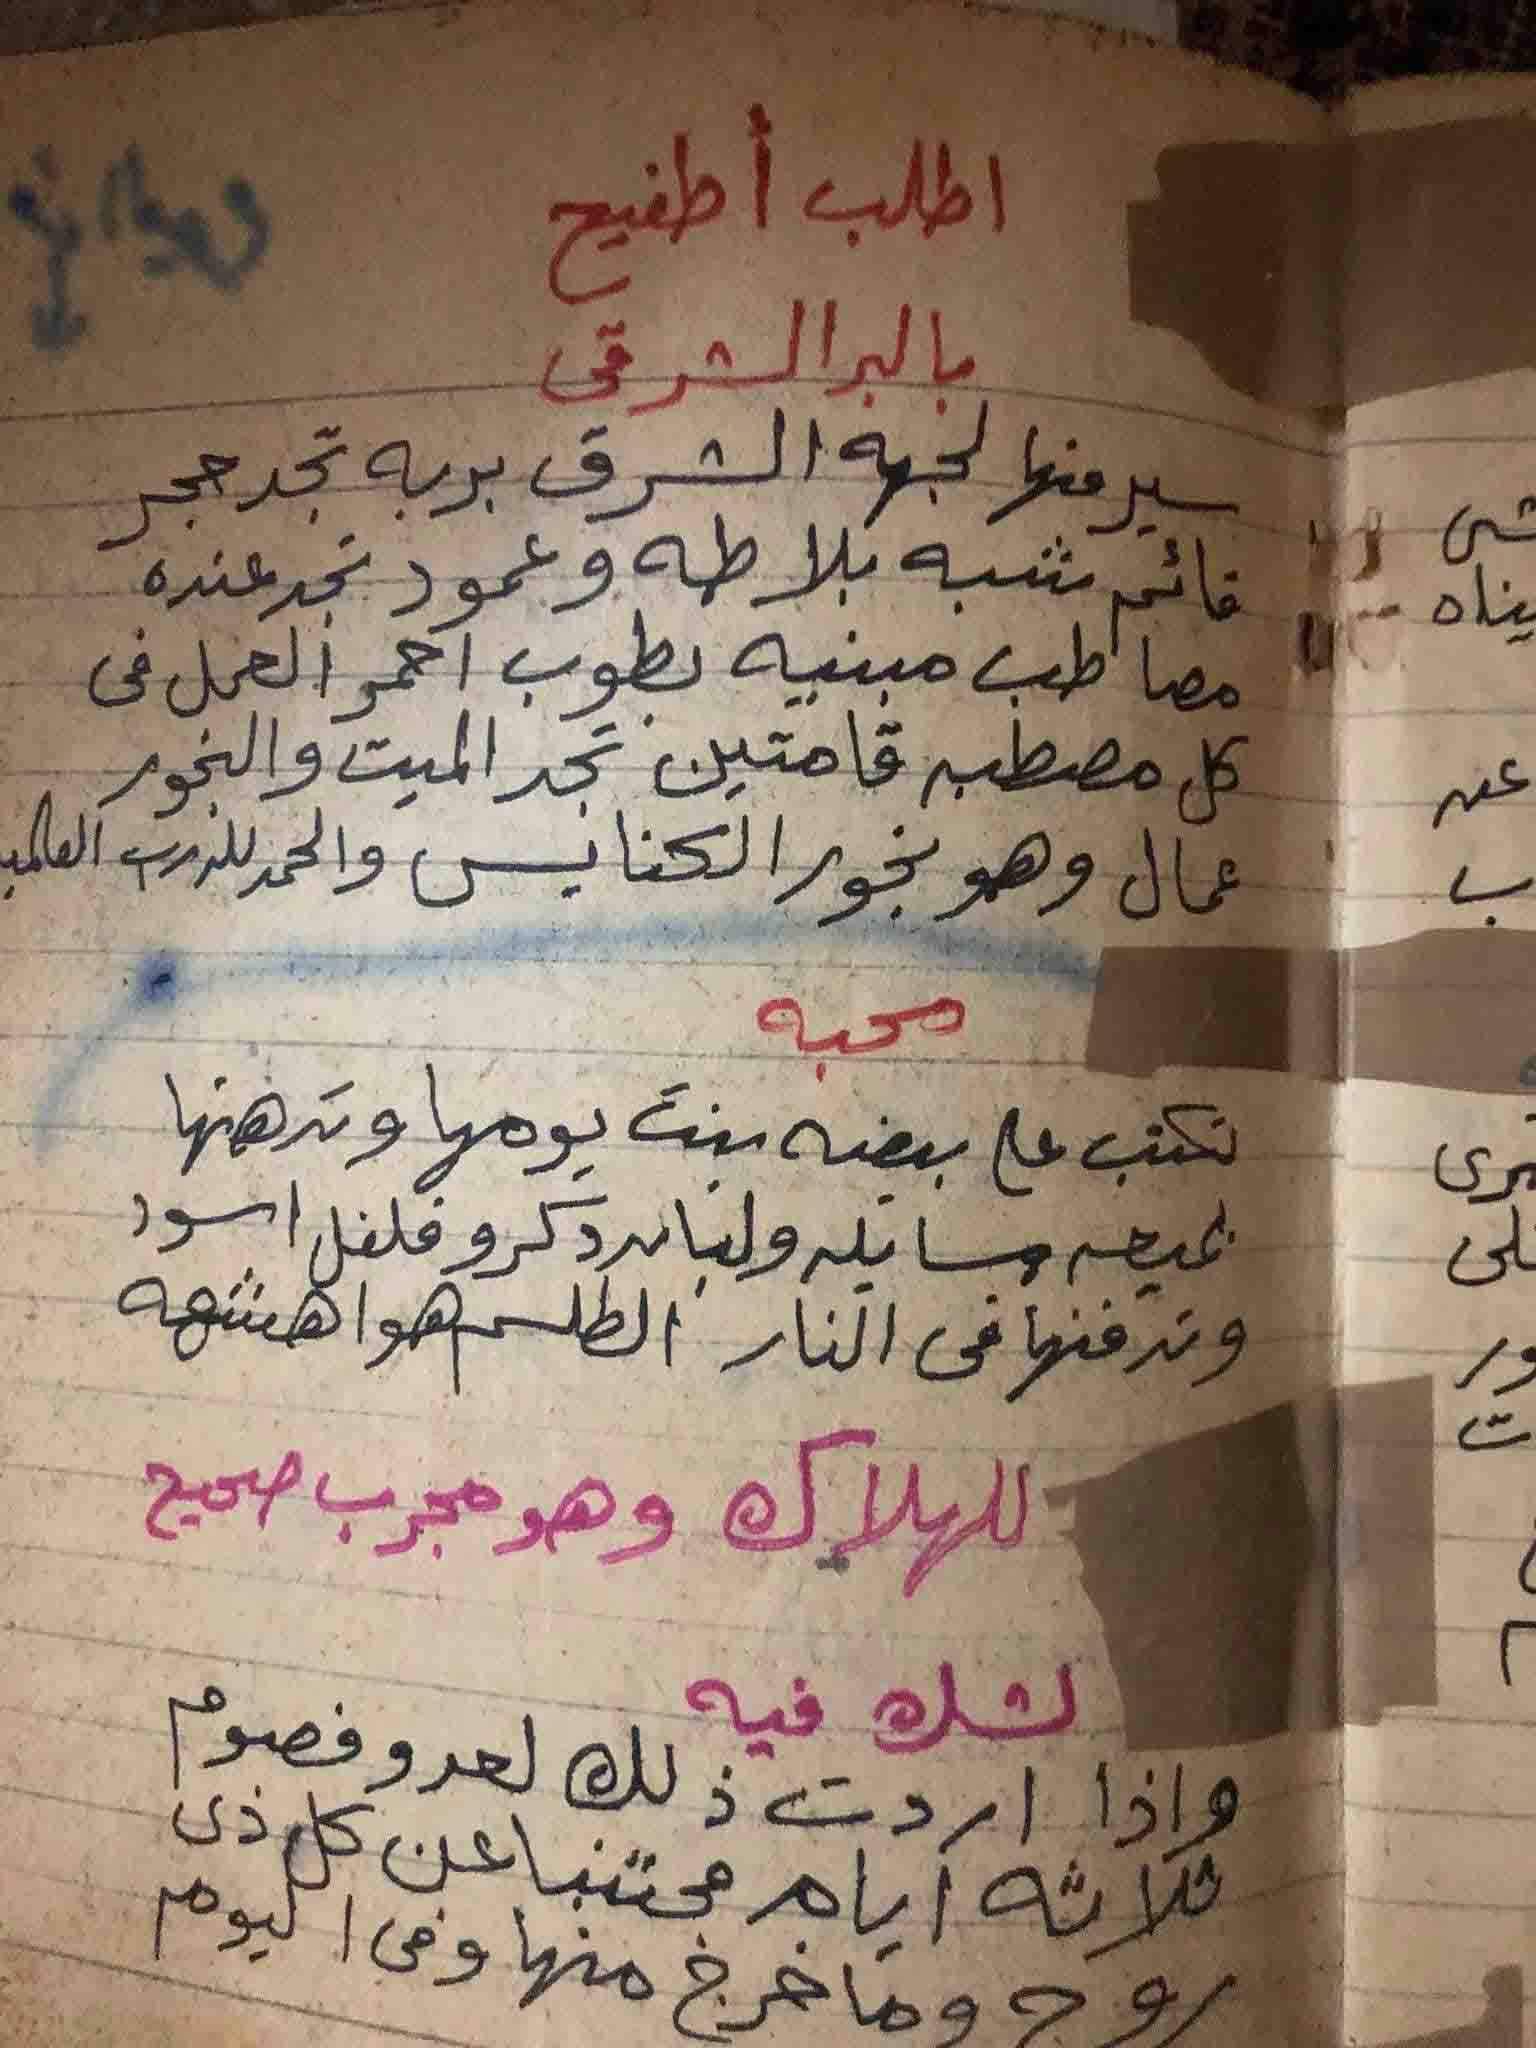 اطلب أطفيح
بالبر الشرقى
سير منها لجهه الشرق بربه تجد حجر
قائم شبه بلاطه وعمود تجد عنده
مصاطب مبنيه بطوب احمر العمل فى
كل مصطبه قامتين تجد الميت والبخور
عمال وهو بخور الكنايس والحمد لله رب العالمين
محبه
تكتب على بيضه بنت يومها وتدهنها
بميعه سايله ولبان دكر وفلفل اسود
وتدفنها فى النار الطلسم هو اهشهه
للهلاك وهو مجرب صحيح
لشك فيه
واذا اردت ذلك لعدو فصوم
ثلاثه ايام مجتنبا عن كل ذى
روح وما خرج منها وفى اليوم
شى
عن
ب
ور
ت